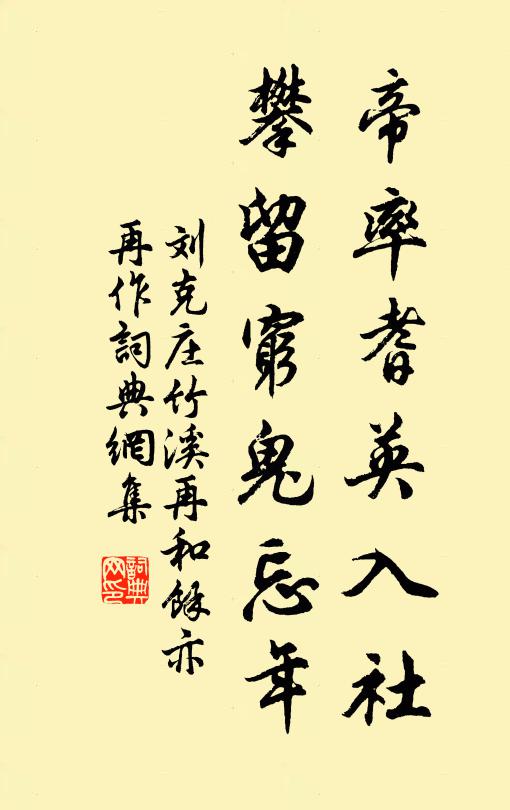 帝率耆英入社
攀留窮鬼忘年
刘克庄竹溪再和馀亦
再作詞典網集
詞典網印